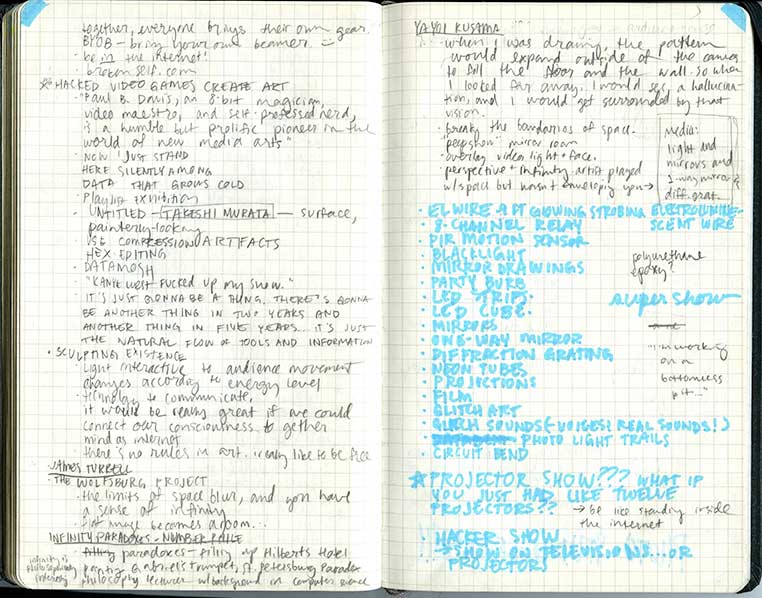 together, everyone brings their own gear.
BYOB - bring your own beamer.
be in the internet!
brokenself.com
HACKED VIDEO GAMES CREATE ART
"Paul B. Davis, an 8-bit magician,
video maestro, and self-professed nerd,
is a humble but prolific pioneer in the
world of new media arts"
NOW I JUST STAND
HERE SILENTLY AMONG
DATA THAT GROWS COLD
Playlist Exhibition
UNTITLED - TAKESHI MURATA - surface,
painterly-looking
USE COMPRESSION ARTIFACTS
HEX EDITING
DATAMOSH
"KANYE WEST FUCKED UP MY SHOW."
IT'S JUST GONNA BE A THING. THERE'S GONNA
BE ANOTHER THING IN TWO YEARS AND
ANOTHER THING IN FIVE YEARS... IT'S JUST
THE NATURAL FLOW OF TOOLS AND INFORMATION
SCULPTING EXISTENCE
light interactive to audience movement
changes according to energy level
technology to communicate,
it would be really great if we could
connect our consciousness together
mind as internet
there's no rules in art. really like to be free
JAMES TURRELL
THE WOLFSBURG PROJECT
the limits of space blur, and you have
a sense of infinity
flat image becomes a room...
INFINITY PARADOXES - NUMBERPHILE
paradoxes - filling up Hilberts Hotel
painting Gabriel's Trumpet, St. Petersburg Paradox
philosophy lecturer w/ background in computer science
infinity is
philosophically
YAYOI KUSAMA
when I was drawing, the pattern
would expand outside of the canvas
to fill the floor and the wall. So when
I looked far away, I would see a hallucina-
tion, and I would get surrounded by that
vision.
break the bandaries of space.
"peepshow" mirror room
overlay video light + face.
perspective + infinity. artist played
w/ space but wasn't enveloping you →
media:
light and
mirrors and
1-way mirror
diff. grat.
EL WIRE A PT GLOWING STROBING ELECTROLUMINE-
SCENT WIRE
8-CHANNEL RELAY
PIR MOTION SENSOR
BLACKLIGHT
MIRROR DRAWINGS
PARTY BULB
LED STRIPS
LED CUBE
MIRRORS
ONE-WAY MIRROR
DIFFRACTION GRATING
NEON TUBES
PROJECTIONS
FILM
GLITCH ART
GLITCH SOUNDS (-VOICES? REAL SOUNDS!)
PHOTO LIGHT TRAILS
CIRCUIT BEND
polyurethane
epoxy?
super show
"i'm working
on a
bottomless
pit..."
PROJECTOR SHOW??? WHAT IF
YOU JUST HAD LIKE TWELVE
PROJECTORS?? → be like standing inside
the internet
HACKER SHOW
→ SHOW ON TELEVISIONS...OR
PROJECTORS